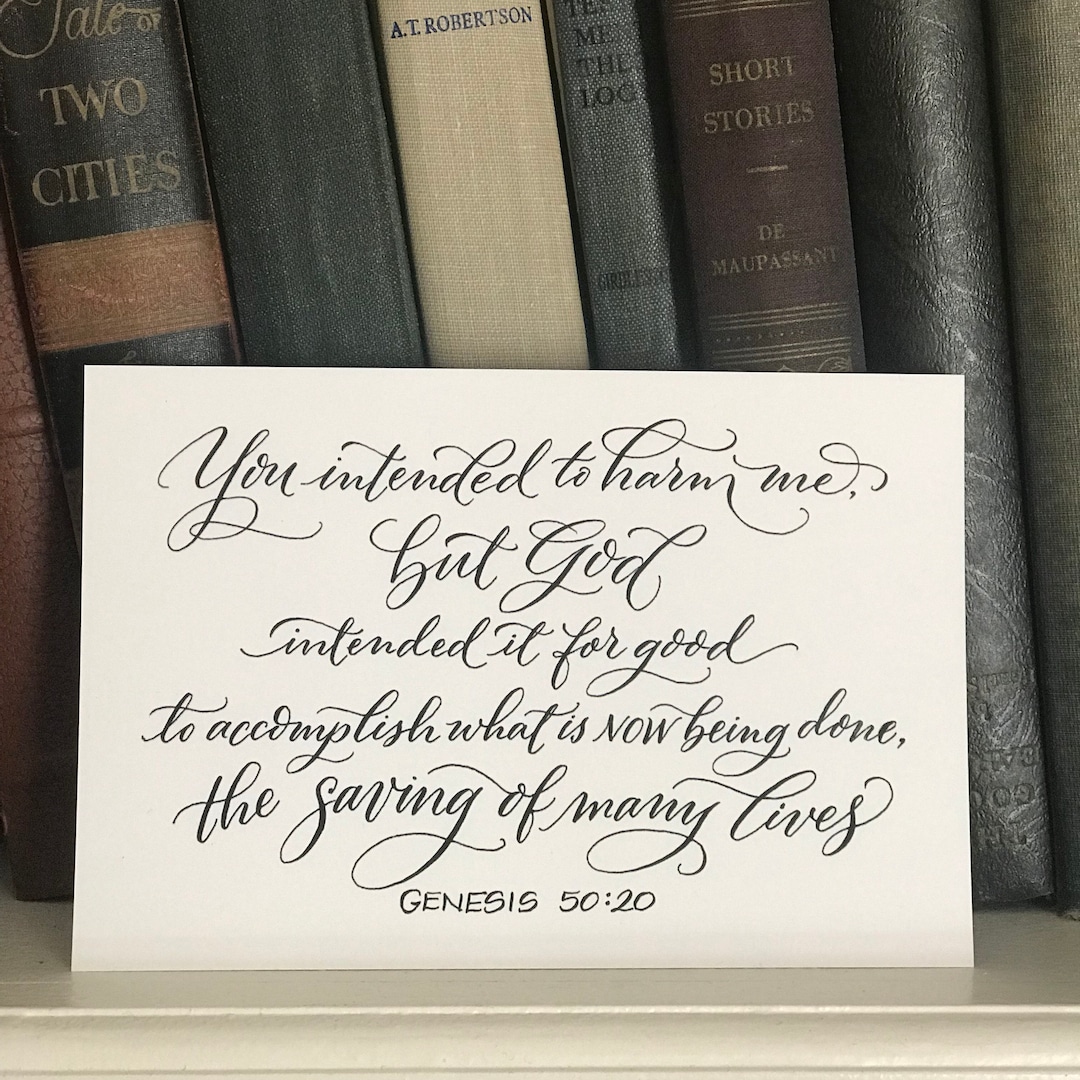 Tale OF
TWO
CITIES
A.T. ROBERTSON
ME
THE
SHORT
STORIES
DE
MAUPASSANT
You intended to harm me,
but God
intended it for good
to accomplish what is NOW being done,
the saving of many lives
GENESIS 50:20